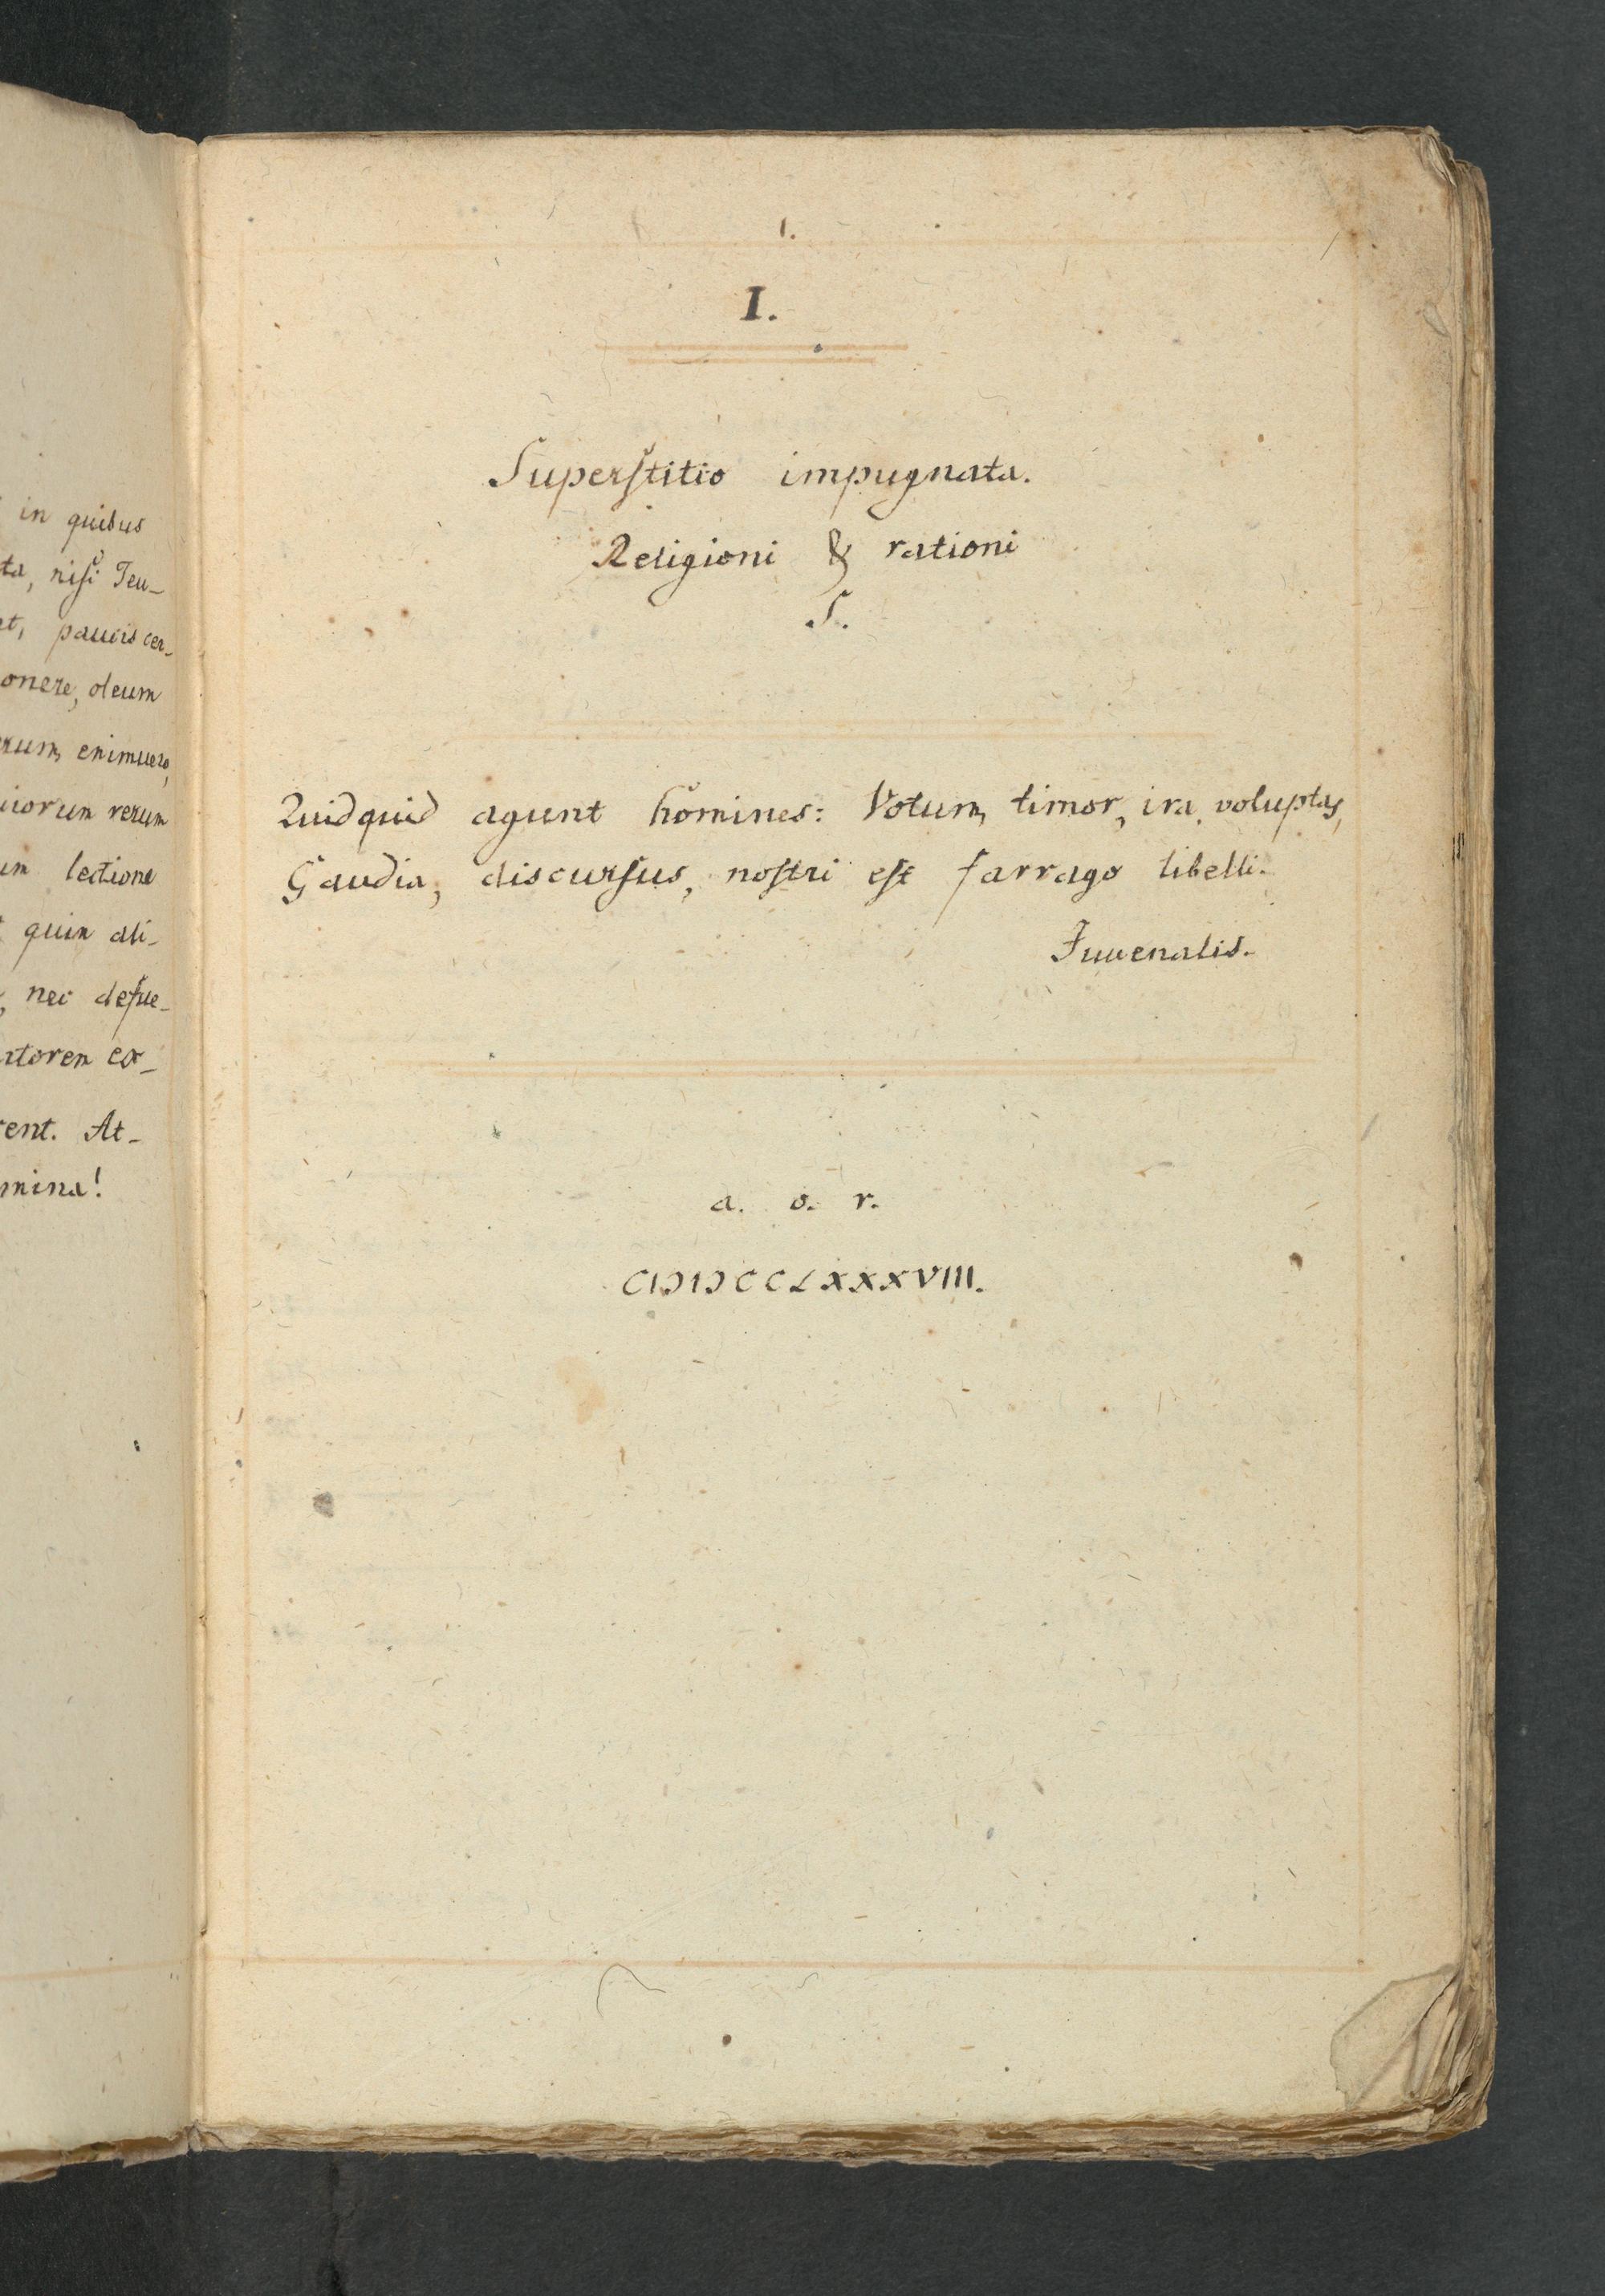 in quibus
ta, nisi Teu-
et, paucis cer-
onere, oleum
rum, enimuero,
uiorum rerum
um lectione
quin ali-
, nec defue-
utorem ex-
rent. At-
mina!
1.
I.
Superstitio impugnata.
Religioni & rationi
S.
Quidquid agunt homines: Votum, timor, ira, voluptas,
Gaudia, discursus, nostri est farrago libelli.
Juuenalis.
a. o. r.
CIↃIↃCCLXXXVIII.